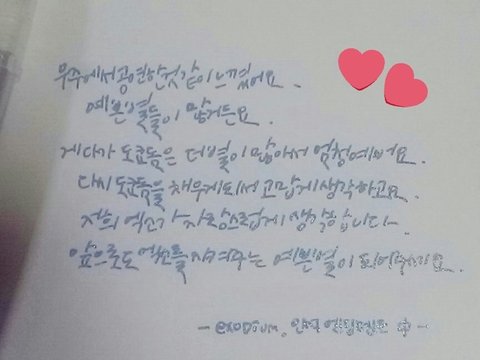 우주에서 공연한것 같이 느꼈어요.
예쁜 별들이 많거든요.
게다가 도쿄돔은 더 별이 많아서 엄청예뻐요.
다시 도쿄돔을 채우게되서 고맙게 생각하고요.
저희 엑소가 자랑스럽게 생각합니다.
앞으로도 엑소를 지켜주는 예쁜별이 되어주세요.
- exodium. 인 中 -